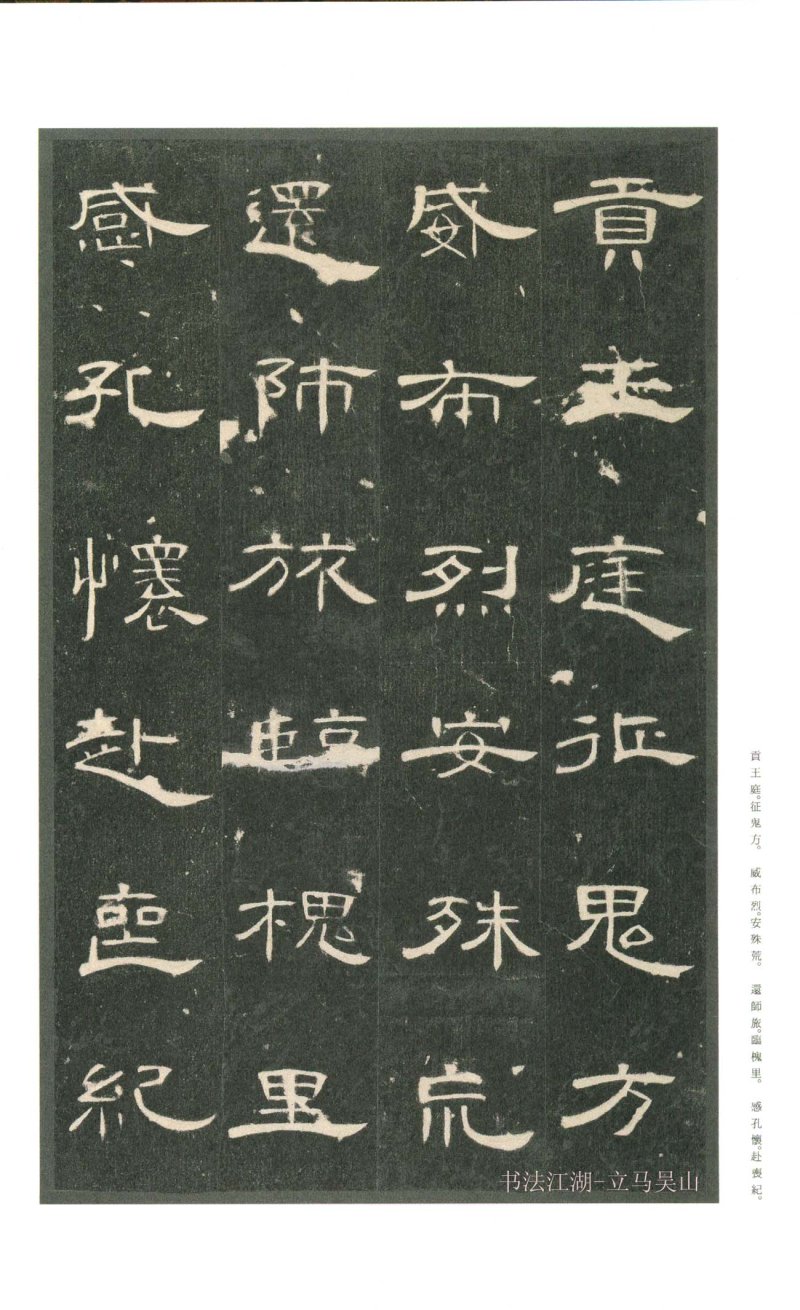 貢王庭征鬼方
威布烈安殊荒
還師旅臨槐里
感孔懷赴喪紀
貢王庭。征鬼方。 威布烈。安殊荒。 還師旅。臨槐里。 感孔懷。赴喪紀。
书法江湖-立马吴山